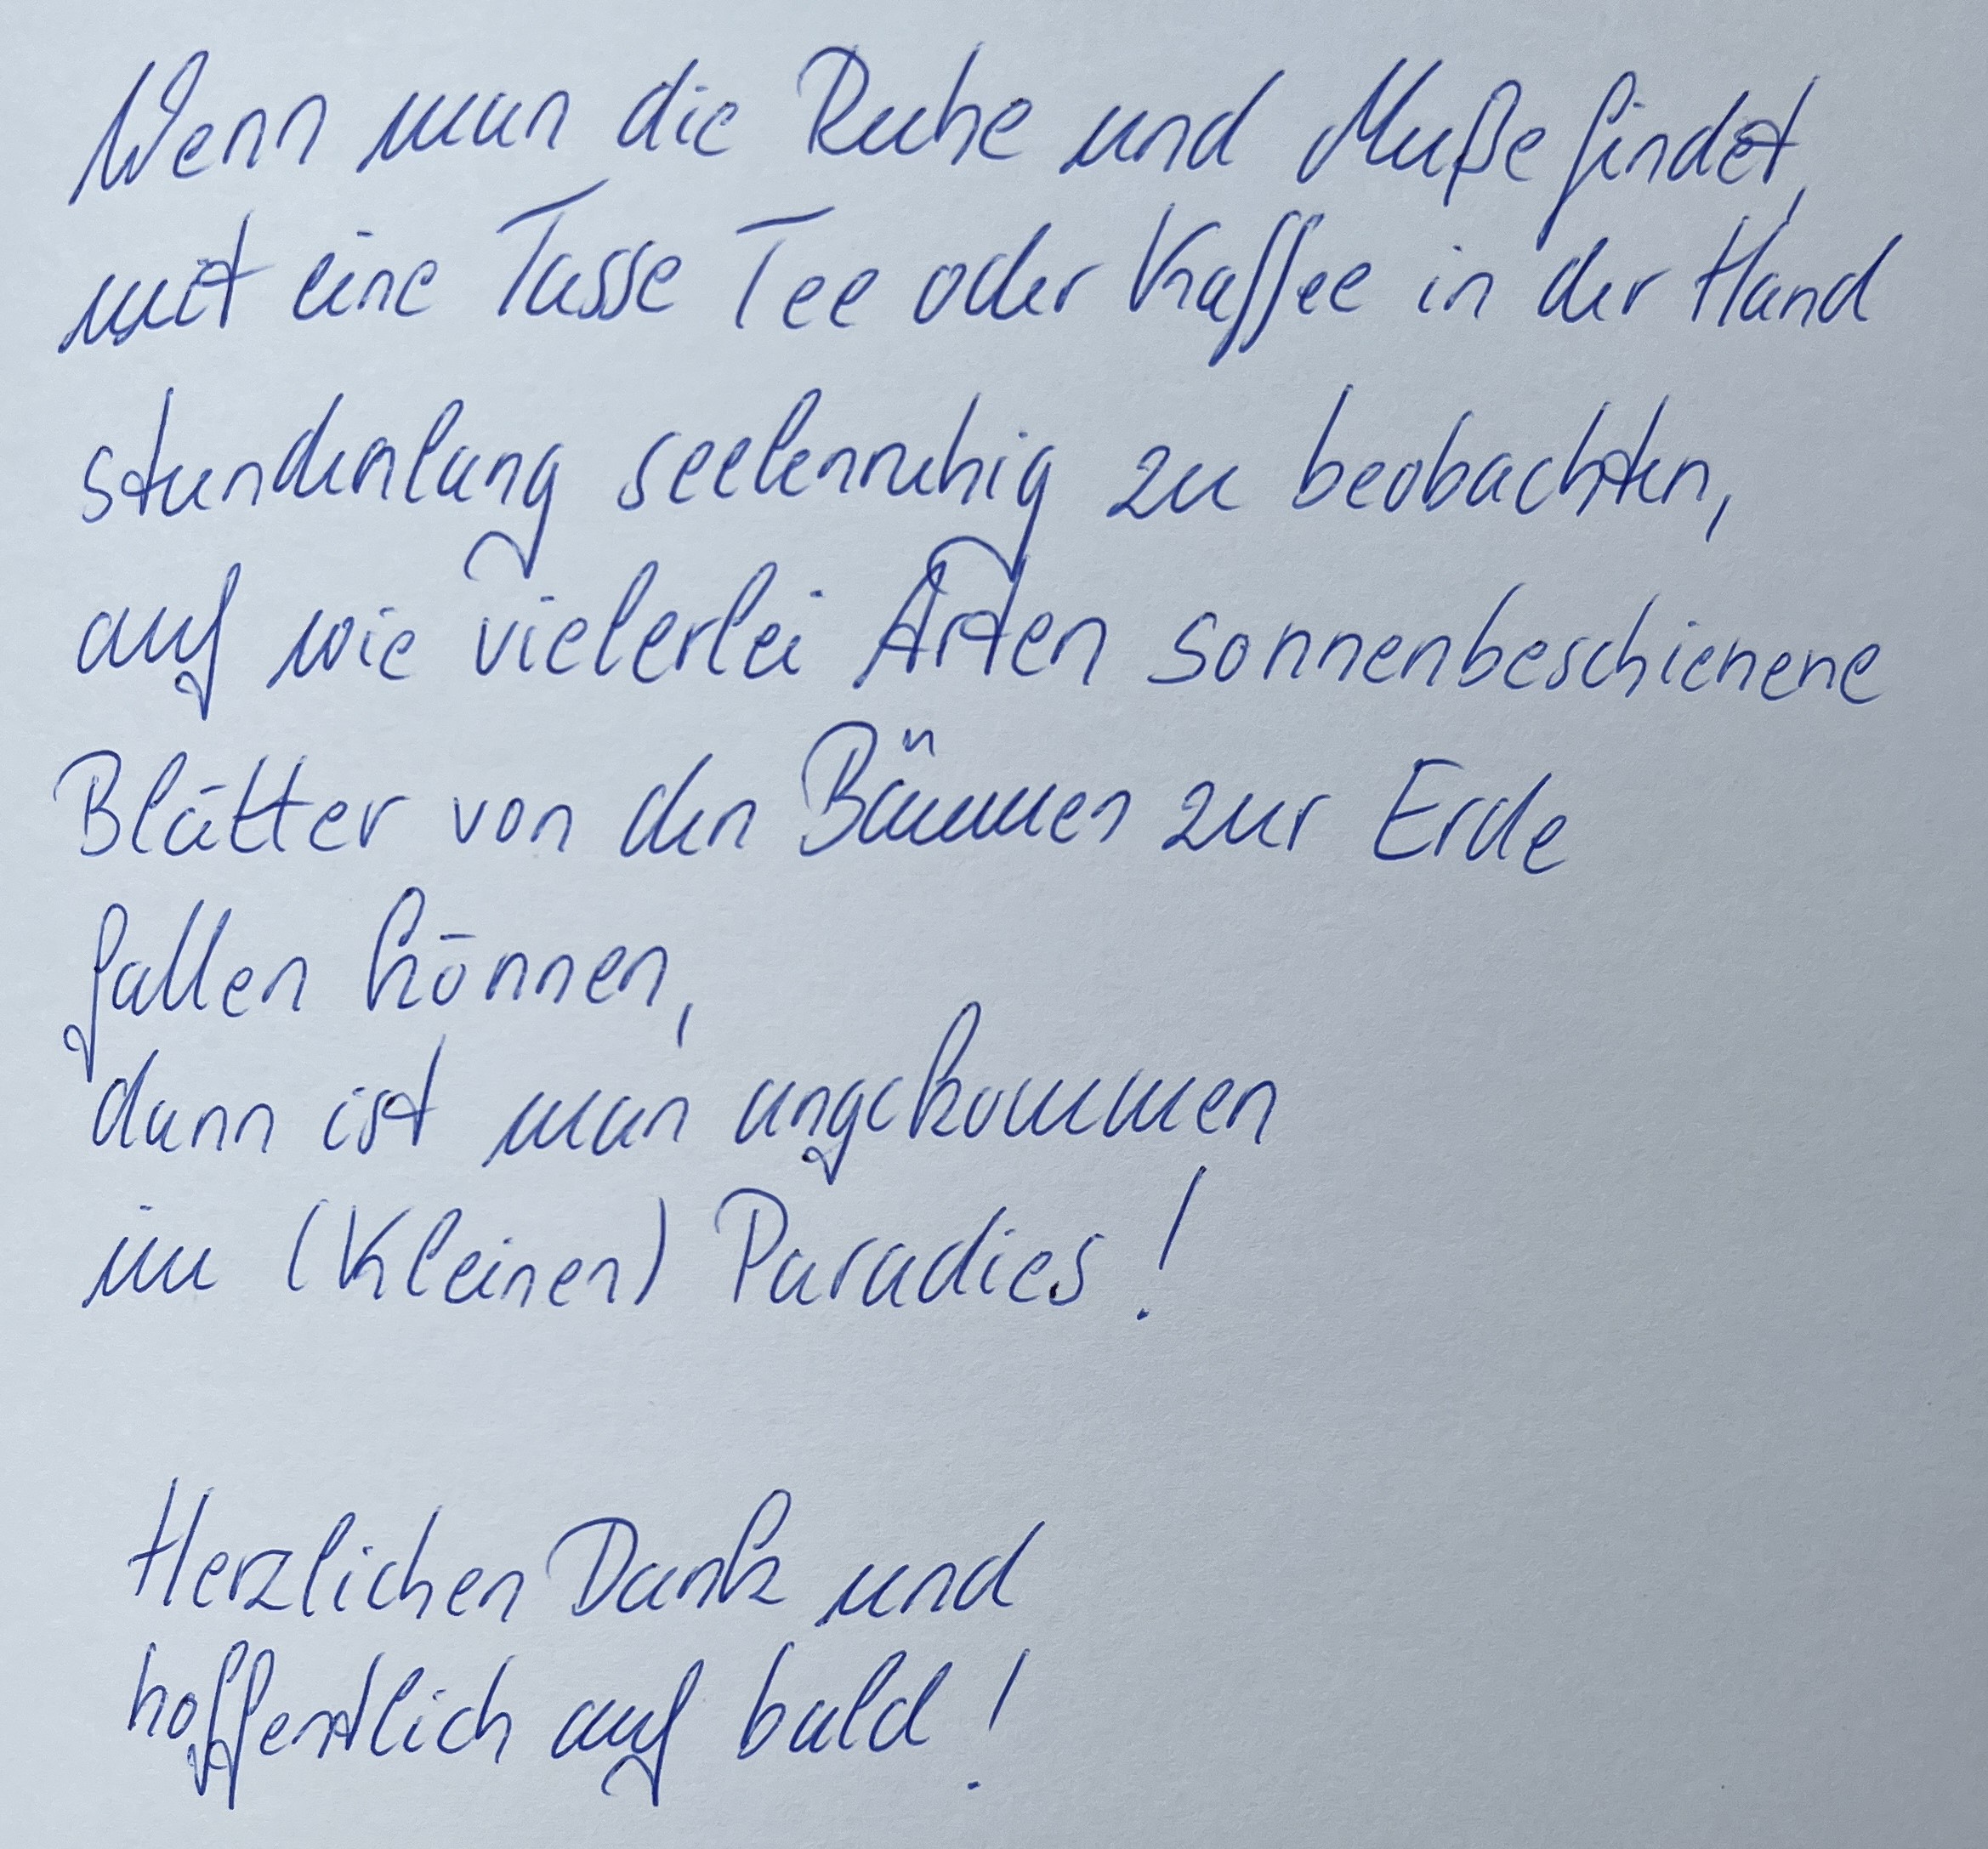 Wenn man die Ruhe und Muße findet,
mit eine Tasse Tee oder Kaffee in der Hand
stundenlang seelenruhig zu beobachten,
auf wie vielerlei Arten sonnenbeschienene
Blätter von den Bäumen zur Erde
fallen können,
dann ist man angekommen
im (Kleinen) Paradies!
Herzlichen Dank und
hoffentlich auf bald!